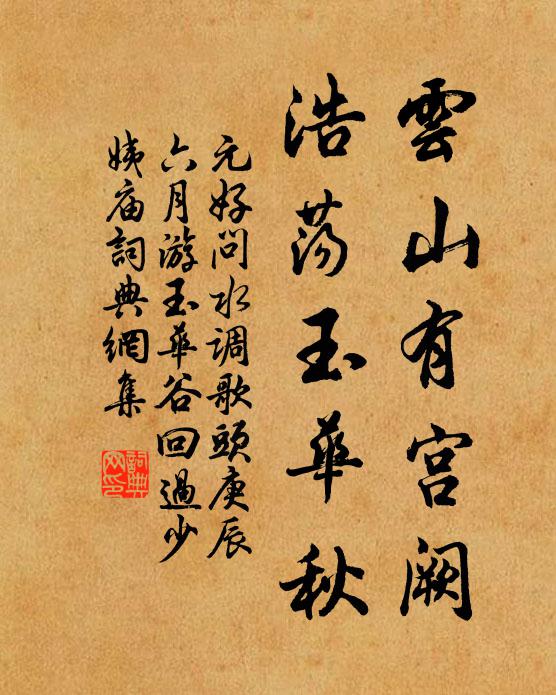 雲山有宮闕
浩蕩玉華秋
元好问水調歌頭庚辰
六月游玉華谷回過少
姨庙詞典網集
詞典网印